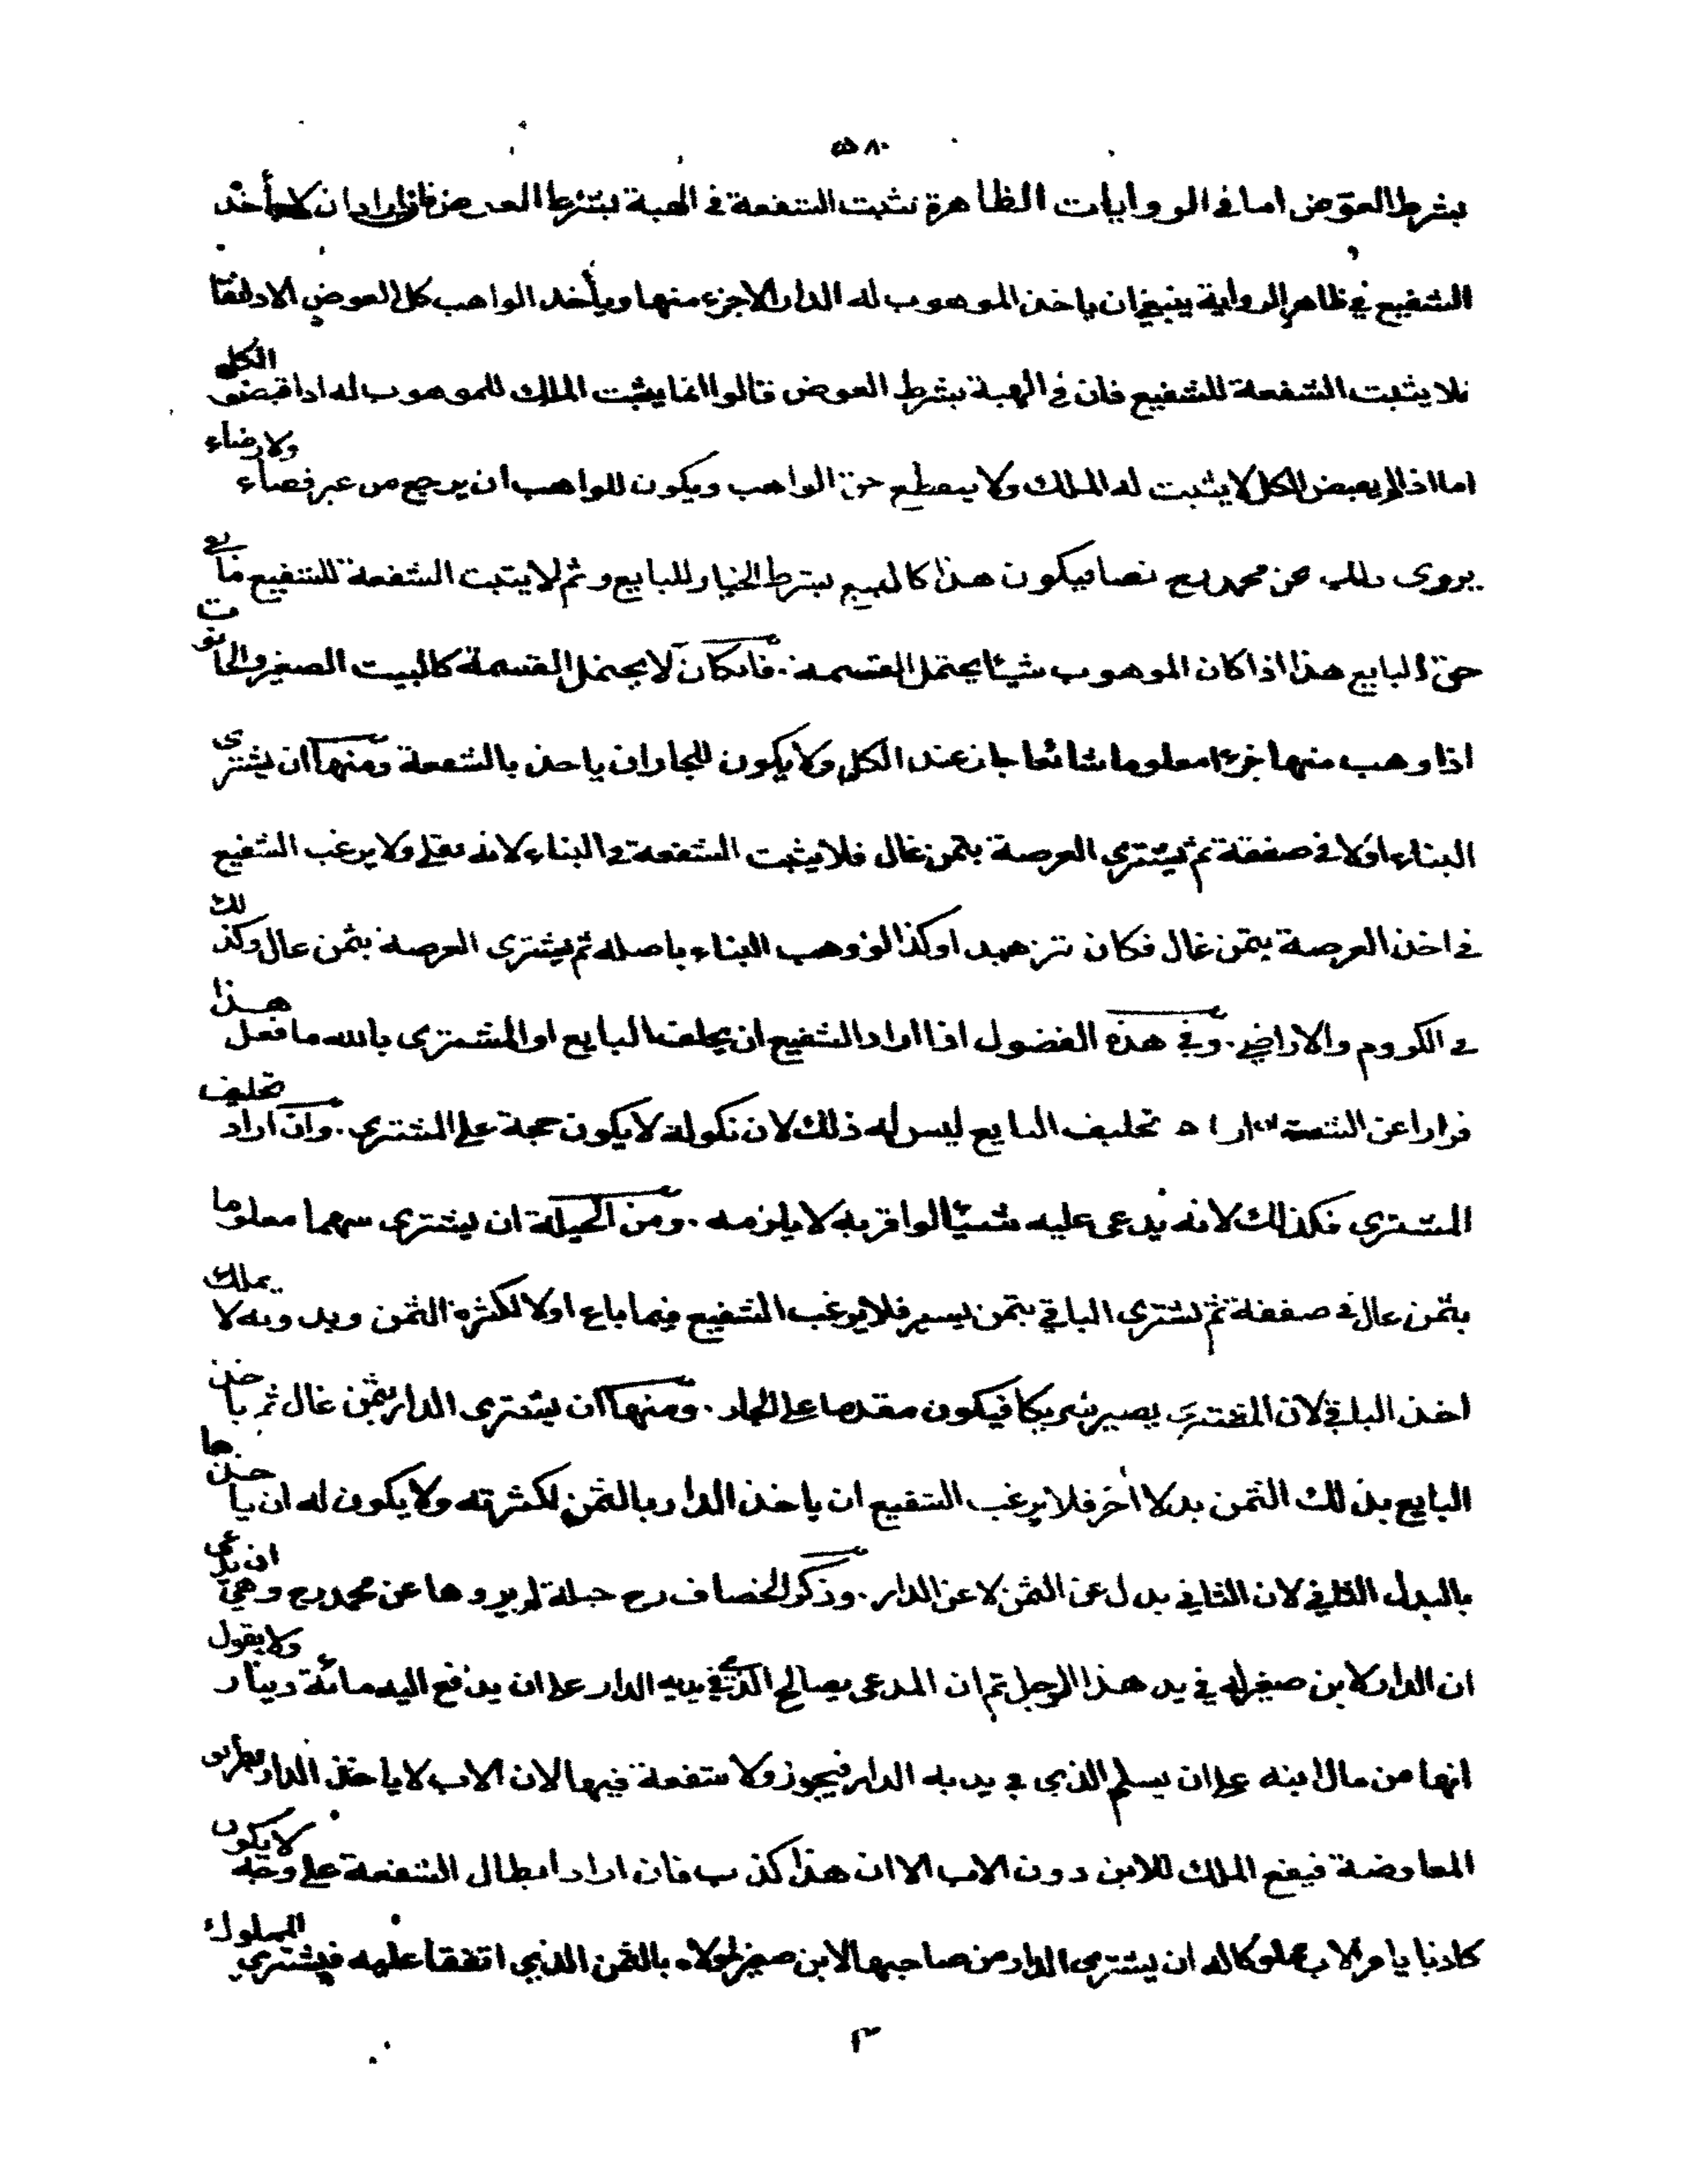 ٥٨٠
بشرط العوض اما فى الروايات الظاهرة تثبت الشفعة فى الهبة بشرط العوض فان اراد ان لا يأخذ
الشفيع في ظاهر الرواية ينبغي ان ياخذ الموهوب له الدار الا جزء منها ويأخذ الواهب كل العوض الا دانقا
فلا يثبت الشفعة للشفيع فان في الهبة بشرط العوض قالوا انما يثبت الملك للموهوب له اذا قبض الكل
اما اذا لم يقبض الكل لا يثبت له الملك ولا ينقطع حق الواهب ويكون للواهب ان يرجع من غير قضاء ولا رضاء
يروى ذلك عن محمد رح نصا فيكون هذا كالبيع بشرط الخيار للبايع وثم لا يثبت الشفعة للشفيع ما بقي
حق البايع هذا اذا كان الموهوب شيئا يحتمل القسمة . فان كان لا يحتمل القسمة كالبيت الصغير والحانوت
اذا وهب منها جزءا معلوما شائعا جاز عند الكل ولا يكون للجار ان ياخذ بالشفعة ومنها ان يشترى
البناء اولا فى صفقة ثم يشترى العرصة بثمن غال فلا يثبت الشفعة في البناء لانه نقلي ولا يرغب الشفيع
في اخذ العرصة بثمن غال فكان تزهيدا وكذا لو وهب البناء باصله ثم يشترى العرصة بثمن غال وكذلك
في الكروم والاراضي . وفي هذه الفصول اذا اراد الشفيع ان يحلف البايع او المشترى بالله ما فعل هذا
فرارا عن الشفعة تحليف البايع ليس له ذلك لان نكوله لا يكون حجة على المشترى . وان اراد تحليف
المشترى فكذلك لانه يدعى عليه شيئا لو اقر به لا يلزمه . ومن الحيلة ان يشترى سهما معلوما
بثمن غال فى صفقة ثم يشترى الباقي بثمن يسير فلا يرغب الشفيع فيما باع اولا لكثرة الثمن وبدونه لا يملك
اخذ الباقي لان المشترى يصير شريكا فيكون مقدما على الجار . ومنها ان يشترى الدار بثمن غال ثم ياخذ
البايع بذلك الثمن بدلا آخر فلا يرغب الشفيع ان ياخذ الدار بالثمن لكثرته ولا يكون له ان ياخذها
بالبدل الثاني لان الثاني بدل عن الثمن لا عن الدار . وذكر الخصاف رح حيلة لم يروها عن محمد رح وهي ان يدعى
ان الدار لابن صغير له في يد هذا الرجل ثم ان المدعى يصالح الذي في يديه الدار على ان يدفع اليه مائة دينار ولا يقول
انها من مال ابنه على ان يسلم الذي في يديه الدار فيجوز ولا شفعة فيها لان الاب لا ياخذ الدار بطريق
المعاوضة فيقع الملك للابن دون الاب الا ان هذا كذب فان اراد ابطال الشفعة على وجه لا يكون
كاذبا يامر الاب مملوكا له ان يشترى الدار من صاحبها لابن صغير لمولاه بالثمن الذي اتفقا عليه فيشترى المملوك